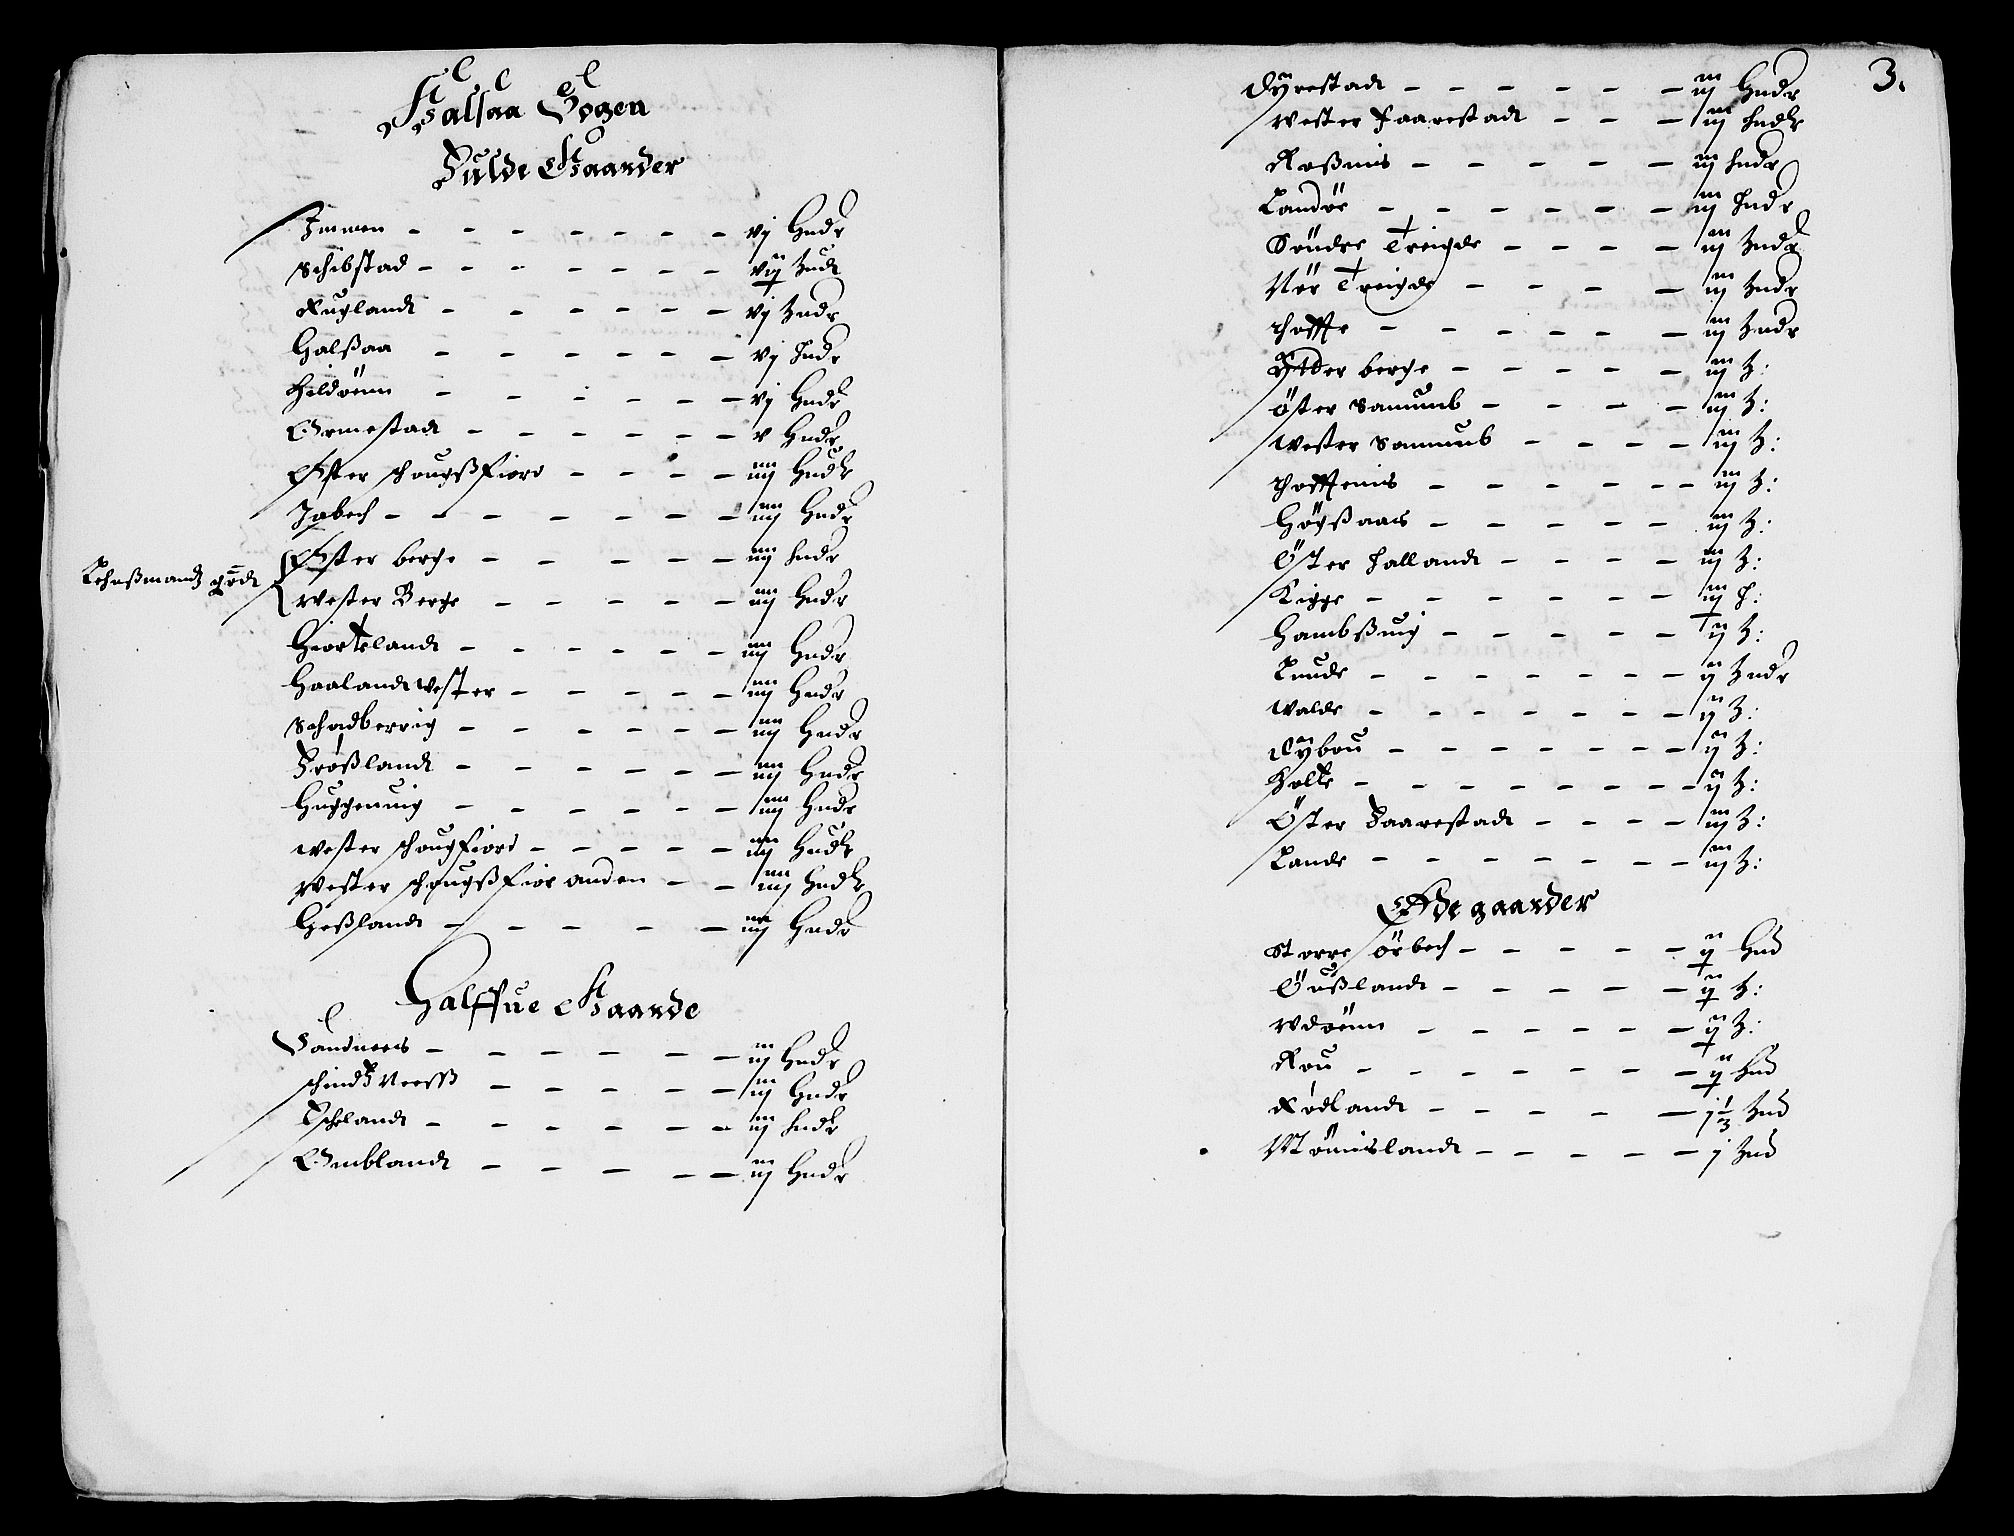 Halsaa Sogen
Fulde Gaarder
Immen - - - - - - - vj Hudr
Schibstad - - - - - - - vij Hudr
Ruglandt - - - - - - vj Hudr
Halßaa - - - - - - vj Hudr
Hildöenn - - - - - - vj Hudr
Ormestadt - - - - - - v Hudr
Öster schougßfiord - - - - iiij Hudr
Jabech - - - - - - - iiij Hudr
Lehnßmandz gordt
Öster berge - - - - - iiij Hudr
Wester Berge - - - - - iiij Hudr
Hiortelandt - - - - - - iiij Hudr
Haalandt Wester - - - - - iiij Hudr
Schadberrig - - - - - - iiij Hudr
Frößlandt - - - - - - iiij Hudr
Huggenuig - - - - - - iiij Hudr
Wester schougfiord - - - - - iiij Hudr
Wester schougßfior anden - - iiij Hudr
Heßlandt - - - - - iiij Hudr
Halffue Gaarde
Sandnees - - - - - - iij Hudr
Schindz Neeß - - - - - iij Hudr
Eschelandt - - - - - - iij Hudr
Omblandt - - - - - iij Hudr
3.
Dÿrestadt - - - - - - iij Hudr
Wester Faarestadt - - - iij Hudr
Roßnis - - - - - iij Hudr
Landöe - - - - - - iij Hudr
Söndre Treigde - - - - iij Hudr
Nör Treigde - - - - iij Hudr
Schoffte - - - - - - iij Hudr
Ÿtter berge - - - - - iij H:
Öster Sanumb - - - - iij H:
Wester Sanumb - - - - iij H:
Schoffenis - - - - - - iij H:
Högßaas - - - - - iij H:
Öster Hallandt - - - - iij H:
Kigge - - - - - - iij H:
Hambßuig - - - - - ij H:
Lunde - - - - - - - ij Hudr
Walde - - - - - - - ij H:
Dÿbou - - - - - - - ij H:
Holte - - - - - - - - ij H:
Öster Faarestadt - - - - iij H:
Lande - - - - - - - iij H:
Øde gaarder
Storre Sörbech - - - - - ij Hud
Öußlandt - - - - - ij H:
Udöenn - - - - - - ij H:
Rou - - - - - - - ij Hud
Rödlandt - - - - - j 1/3 Hud
Mönislandt - - - - - j Hud